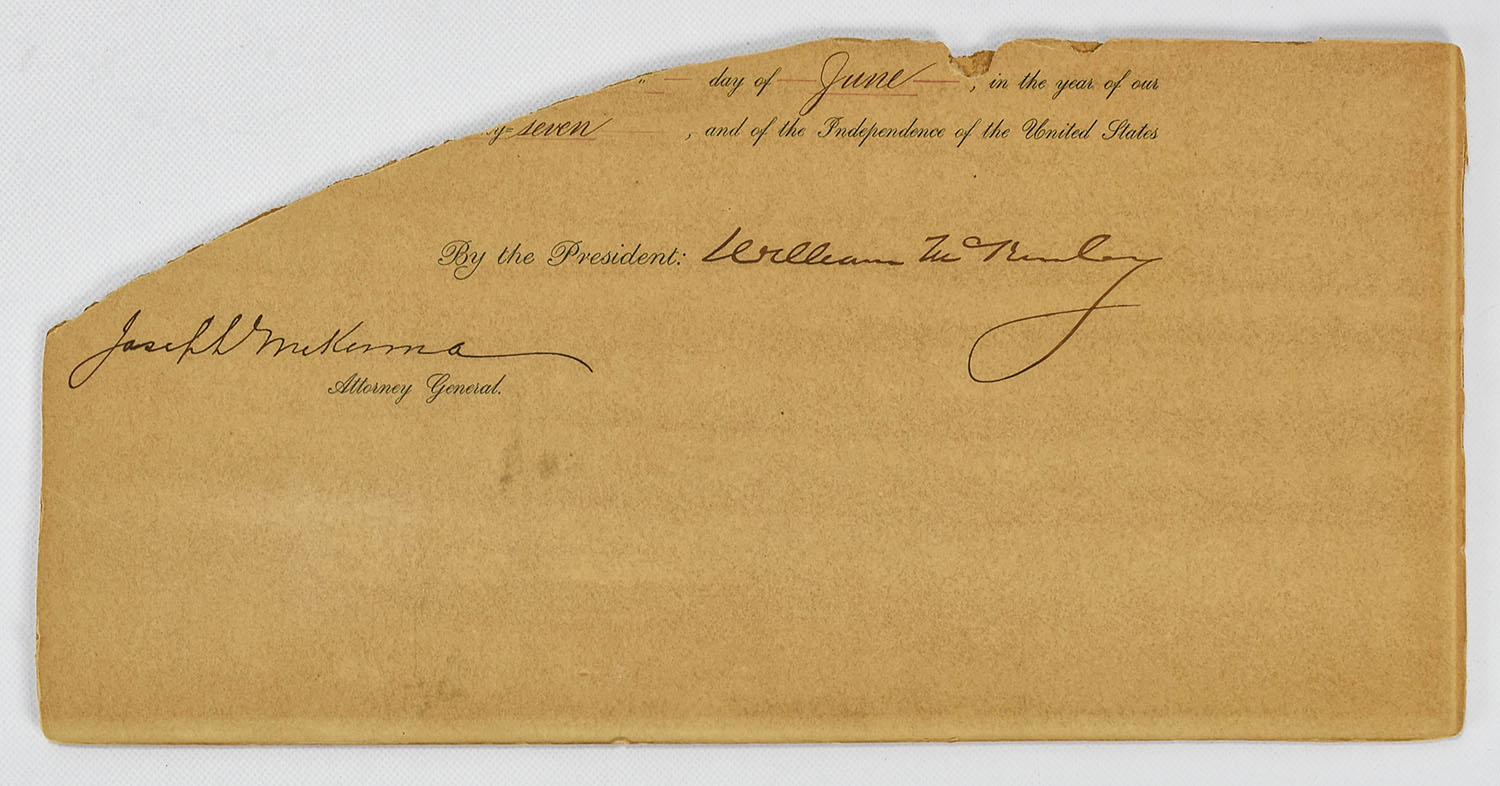 " day of June , in the year of our
y-seven , and of the Independence of the United States
By the President: William McKinley
Joseph McKenna
Attorney General.